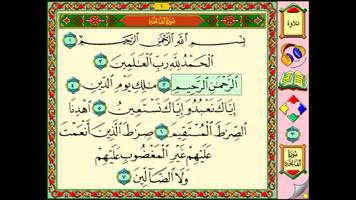 ١
سُورَةُ الفَاتِحَةِ
بِسْمِ ٱللَّهِ ٱلرَّحْمَٰنِ ٱلرَّحِيمِ ١
ٱلْحَمْدُ لِلَّهِ رَبِّ ٱلْعَٰلَمِينَ ٢
ٱلرَّحْمَٰنِ ٱلرَّحِيمِ ٣ مَٰلِكِ يَوْمِ ٱلدِّينِ ٤
إِيَّاكَ نَعْبُدُ وَإِيَّاكَ نَسْتَعِينُ ٥ ٱهْدِنَا
ٱلصِّرَٰطَ ٱلْمُسْتَقِيمَ ٦ صِرَٰطَ ٱلَّذِينَ أَنْعَمْتَ
عَلَيْهِمْ غَيْرِ ٱلْمَغْضُوبِ عَلَيْهِمْ
وَلَا ٱلضَّآلِّينَ ٧
تلاوة
٣
سُورَةُ
الفَاتِحَةِ